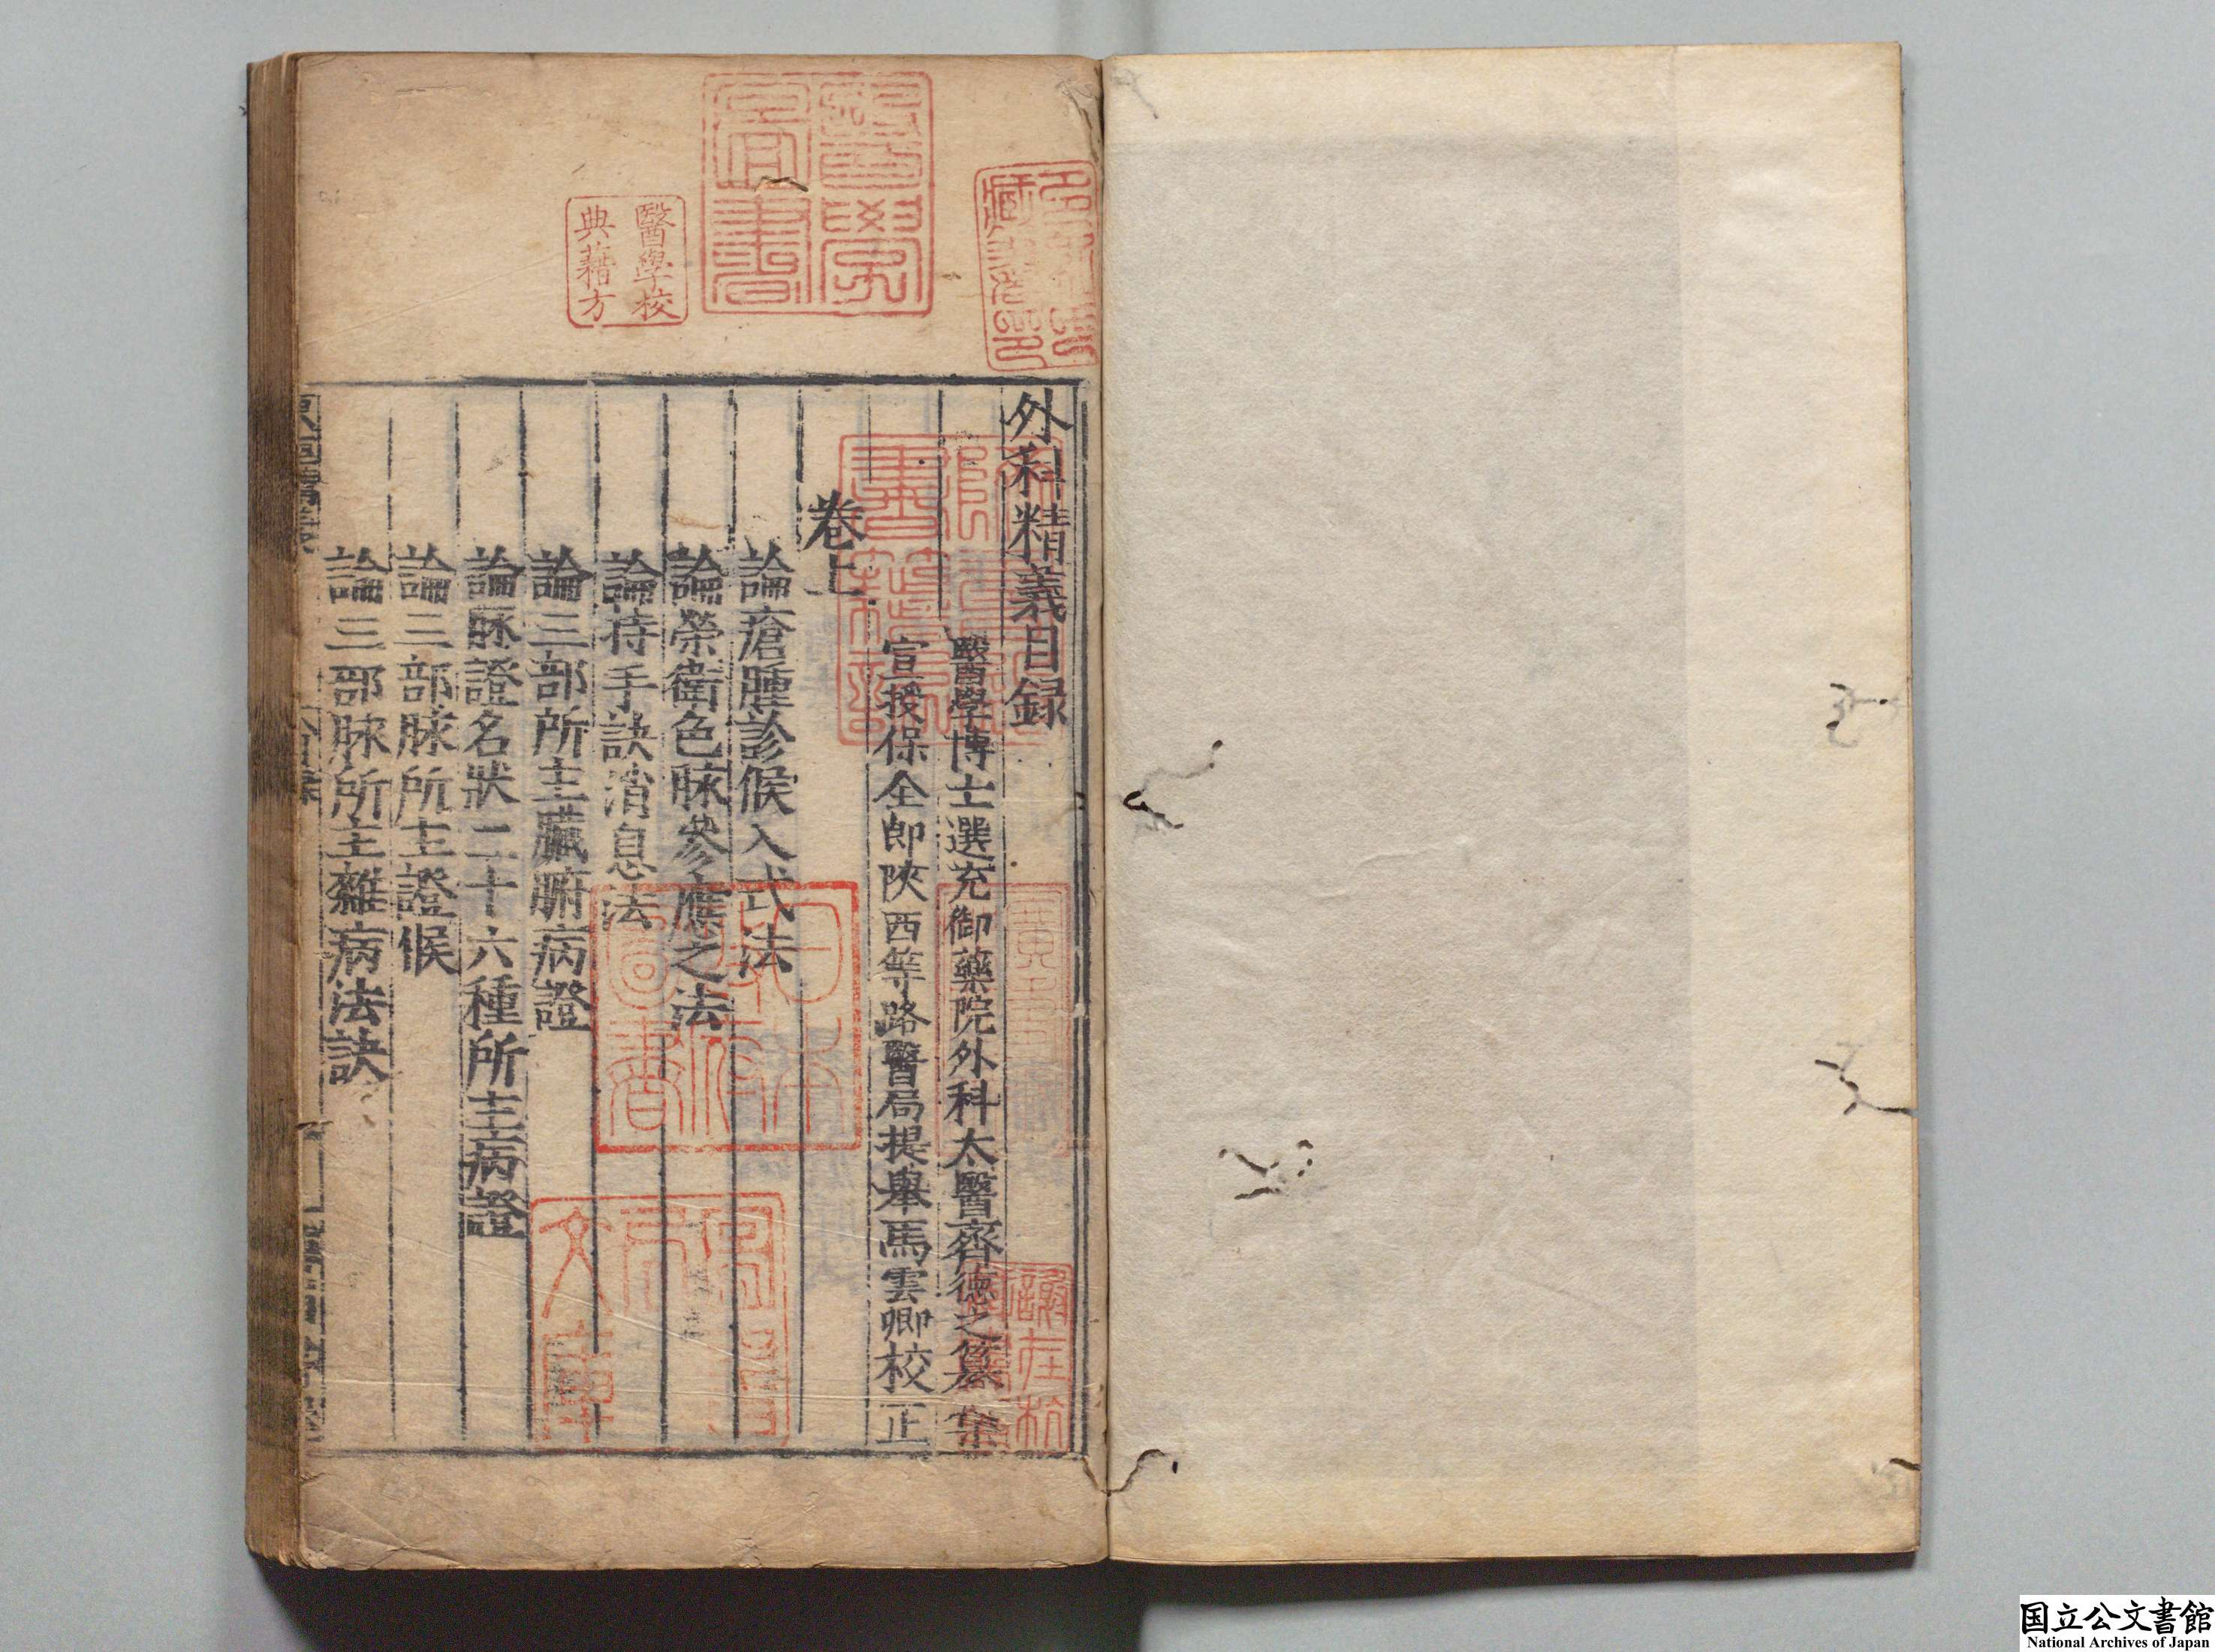 外科精義目録
醫學博士選充御藥院外科太醫齊德之纂集
宣授保全郎陝西等路醫局提舉馬雲卿校正
卷上
論瘡腫診候入式法
論榮衛色脉參應之法
論持手訣消息法
論三部所主臟腑病證
論脉證名狀二十六種所主病證
論三部脉所主證候
論三部脉所主雜病法訣
醫學圖書
醫學校
典藉方
日本
政府
圖書
文庫
国立公文書館
National Archives of Japan